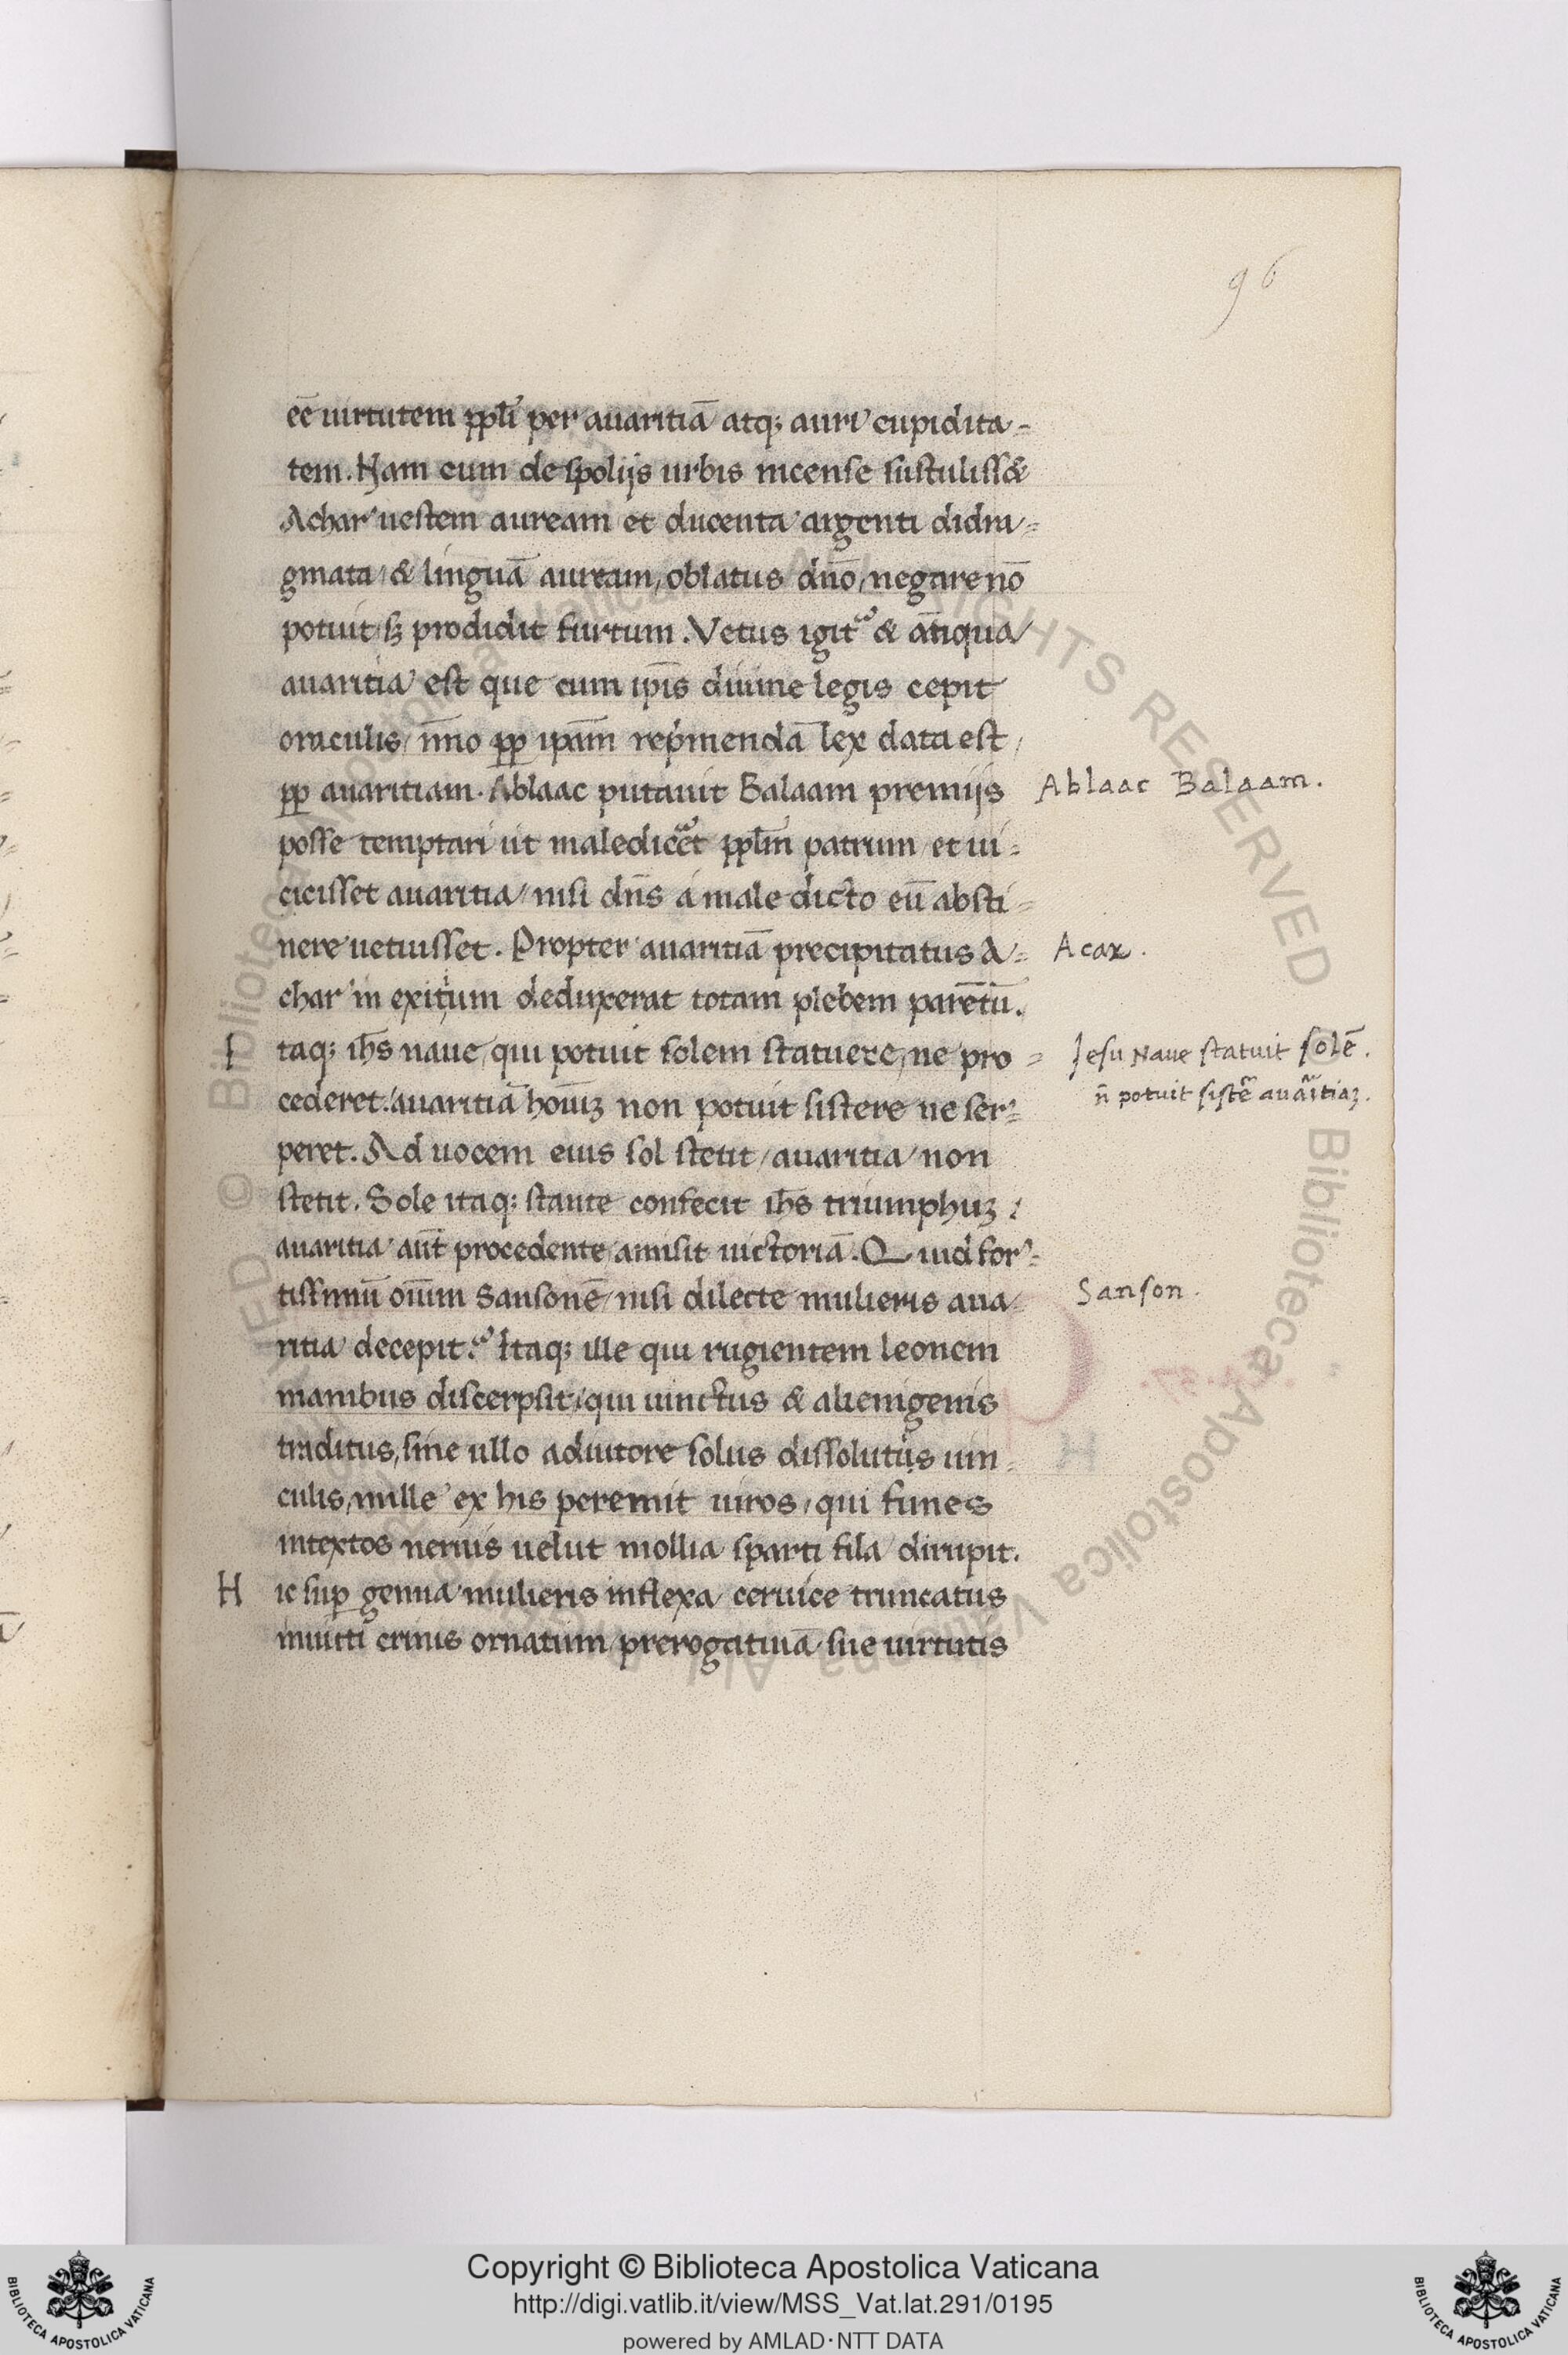 96
eē uirtutem ppl̄i per auaritiā atq; auri cupidita-
tem. Nam cum de spolijs urbis nicense sustuliss&
Achar uestem auream et ducenta argenti didra-
gmata & linguā auream, oblatus dño, negare nō
potuit sꝫ prodidit furtum. Vetus igit᷑ & ātiqua
auaritia est que cum ip̄is diuine legis cepit
oraculis, īmo ꝓp ip̄am rep̄mendā lex data est,
ꝓp auaritiam. Ablaac putauit Balaam premijs
Ablaac Balaam.
posse temptari ut maledic᷑et ppl̄m patrum et ui-
cicisset auaritia, nisi dn̄s a male dicto eū absti-
nere uetuisset. Propter auaritiā precipitatus A-
Acax.
char in exitium deduxerat totam plebem parētū.
I taq; ih̄s naue, qui potuit solem statuere, ne pro-
Jesu Naue statuit solē.
cederet. auaritiā hoı̄uꝫ non potuit sistere ne ser-
n̄ potuit sistē auaritiaꝫ.
peret. Ad uocem eius sol stetit, auaritia non
stetit. Sole itaq; stante confecit ih̄s triumphuꝫ:
auaritia aūt procedente amisit uictoriā. Quid for-
tissimū oīum Sansonē, nisi dilecte mulieris aua
Sanson.
ritia decepit? Itaq; ille qui rugientem leonem
manibus discerpsit, qui uinctus & alienigenis
traditus, sine ullo adiutore solus dissolutis uin-
culis, mille ex his peremit uiros, qui funes
intextos neruis uelut mollia sparti fila dirupit.
H ic sup̱ genua mulieris inflexa ceruice truncatus
inuicti crinis ornatum, prerogatiuā sue uirtutis
Copyright © Biblioteca Apostolica Vaticana
http://digi.vatlib.it/view/MSS_Vat.lat.291/0195
powered by AMLAD·NTT DATA
BIBLIOTECA APOSTOLICA VATICANA
BIBLIOTECA APOSTOLICA VATICANA